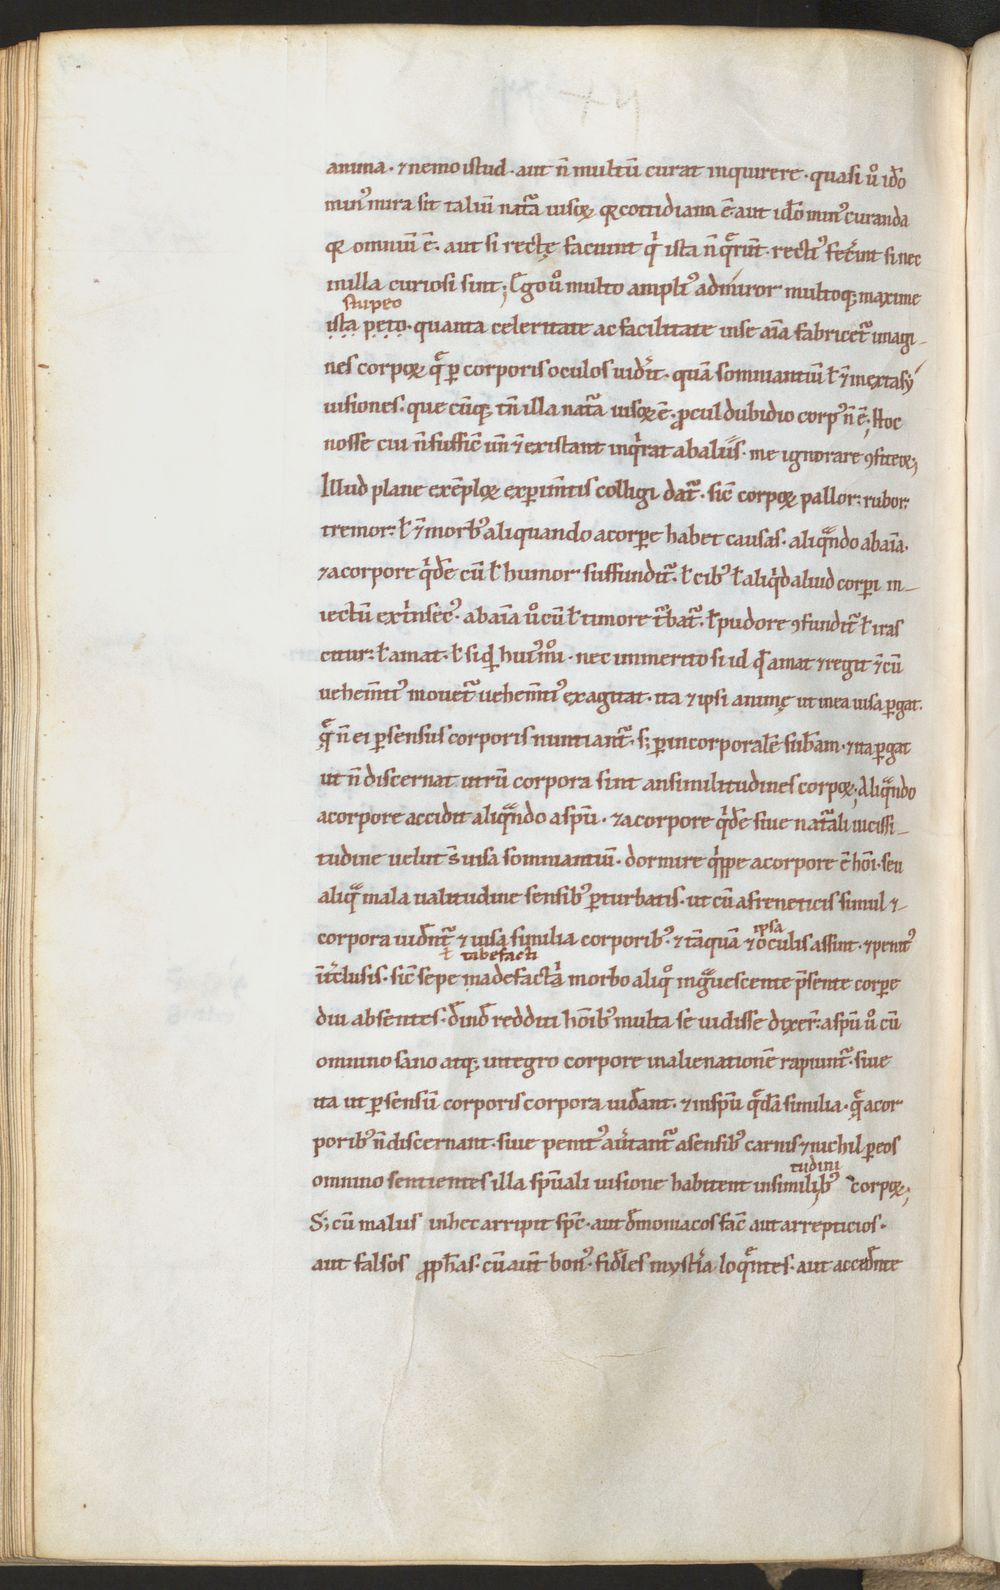 anima · ⁊ nemo istud · aut n̄ multū curat inquirere · quasi u͛o id̄o
min᷒ mira sit taliū natᷓa uisoꝝ · qꝛ cottidiana ē · aut id̄o min᷒ curanda
qꝛ omniū ē · aut si rectę faciunt qͥ ista n̄ qᷓrunt · recti᷒ fec̄int si nec
in illa curiosi sint ; Ego u͛o multo ampli᷒ admiror multoqꝫ maxime
stupeo
ista peto · quanta celeritate ac facilitate in se aīa fabricetᷓ imagi-
nes corpoꝝ qᷓ ꝑ corporis oculos uid̄it · quā somniantiū ł ⁊̄ in extasẏ
uisiones · que cūqꝫ tn̄ illa natᷓa uisoꝝ ē · ꝓcul dubidio corp᷒ n̄ ē ; Hoc
nosse cui n̄ suffic̄ un̄ ⁊̄ existant inqͥrat ab aliis · me ignorare ꝯfiteoꝛ ;
Illud plane exēploꝝ experim̄tis colligi datᷓ · sic̄ corpoꝝ pallor : rubor :
tremor : ł ⁊̄ morb᷒ aliquando a corꝑe habet causas · aliqᷓndo ab aīa ·
⁊ a corpore qͥd̄e cū ł humor suffunditᷓ · ł cib᷒ ł aliqͥd aliud corꝑi in-
iectū extͥnsec᷒ · ab aīa u͛o cū ł timore tᷓbatᷓ · ł pudore ꝯfunditᷓ ł iras
citur : ł amat · ł si qͥd hui᷒mͦi · nec immerito si id qͩ amat ⁊ regit ⁊̄ cū
uehem̄ti᷒ mouetᷓ uehem̄ti᷒ exagitat · ita ⁊ ipsi animę ut in ea uisa ꝑgat ·
qᷓ n̄ ei ꝑ sensus corporis nuntiantᷓ · sꝫ ꝑ incorporalē subām · ⁊ ita ꝑgat
ut n̄ discernat utrū corpora sint an similitudines corpoꝝ ; Aliqᷓndo
a corpore accidit aliqᷓndo a spū · ⁊ a corpore qͥd̄e siue natᷓali uicissi-
tudine uelut s̄ uisa somniantiū · dormire qͥppe a corpore ē hōi · seu
aliqᷓ mala ualitudine sensib᷒ ꝑturbatis · ut cū a freneticis simul ⁊-
ipsa
corpora uid̄ntᷓ ⁊ uisa similia corporib᷒ · ⁊ tāquā ⁊ oculis assint · ⁊ penit᷒
ł tabefacti
int͛clusis · sic̄ sepe madefactͥa morbo aliqͦ ingᷓuescente p̄sente corꝑe
diu absentes · d̄ind̄ redditi hōib᷒ multa se uidisse dixer̄ : a spū u͛o cū
omnino sano atqꝫ integro corpore in alienationē rapiuntᷓ · siue
ita ut ꝑ sensū corporis corpora uid̄ant · ⁊ in spū qᷓdā similia · qᷓ a cor
porib᷒ n̄ discernant · siue penit᷒ au͛tantᷓ a sensib᷒ carnis ⁊ nichil ꝑ eos
tudini
omnino sentientes illa spūali uisione habitent in similib᷒ corpoꝝ ;
Sꝫ cū malus in hec arripit spc̄ · aut d̄moniacos fac̄ aut arrepticios ·
aut falsos ꝓph̄as · cū aūt bon᷒ · fid̄les myst͛ia loqᷓntes · aut acced̄nte